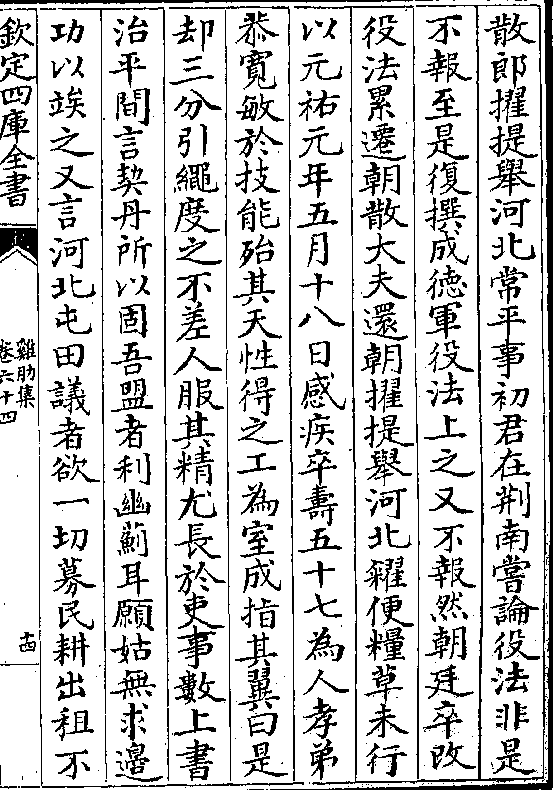 散郎擢提舉河北常平事初君在荆南嘗論役法非是
不報至是復撰成徳軍役法上之又不報然朝廷卒改
役法累遷朝散大夫還朝擢提舉河北糴便糧草未行
以元祐元年五月十八日感疾卒壽五十七為人孝弟
恭寛敏於技能殆其天性得之工為室成指其翼曰是
却三分引繩度之不差人服其精尤長於吏事數上書
治平間言契丹所以固吾盟者利幽薊耳願姑無求邉
功以竢之又言河北屯田議者欲一切募民耕出租不
欽定四庫全書
雞肋集
卷六十四
十四